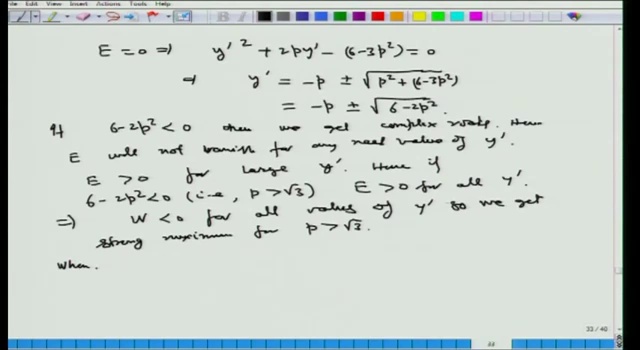 File Edit View Insert Actions Tools Help
E = 0 ⇒ y'² + 2py' − (6−3p²) = 0
⇒ y' = −p ± √(p² + (6−3p²))
= −p ± √(6−2p²).
If 6−2p² < 0 then we get complex roots. Hence
E will not vanish for any real value of y'.
E > 0 for large y'. Hence if
6−2p² < 0 (i.e., p > √3) E > 0 for all y'.
⇒) W < 0 for all values of y' so we get
strong maximum for p > √3.
When.
33 / 40
33